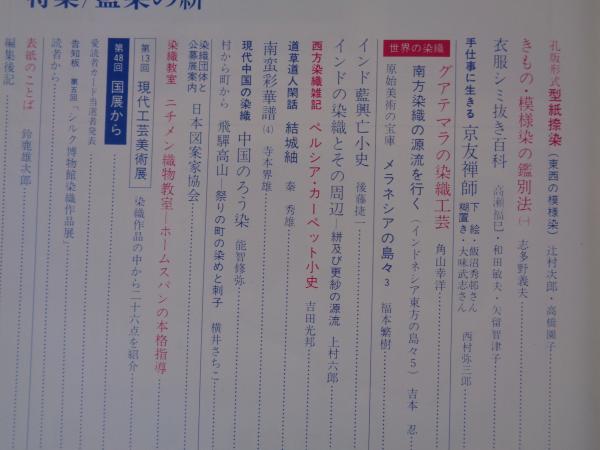 特集/藍染の新
孔版形式 型紙捺染（東西の模様染） 辻村次郎・高橋園子
きもの・模様染の鑑別法㈠ 志多野義夫
衣服シミ抜き百科 高瀬福巳・和田敏夫・矢留智津子
手仕事に生きる 京友禅師 下絵・飯沼秀邨さん 糊置き・大味武志さん 西村弥三郎
グアテマラの染織工芸 角山幸洋
世界の染織
南方染織の源流を行く（インドネシア東方の島々5） 吉本 忍
原始美術の宝庫 メラネシアの島々 3 福本繁樹
インド藍興亡小史 後藤捷一
インドの染織とその周辺 絣及び更紗の源流 上村六郎
西方染織雑記 ペルシア・カーペット小史 吉田光邦
道草道人閑話 結城紬 秦 秀雄
南蛮彩華譜（4） 寺本界雄
現代中国の染織 中国のろう染 能智修弥
村から町から 飛騨高山 祭りの町の染めと刺子 横井さちこ
染織団体と公募展案内 日本図案家協会
染織教室 ニチメン織物教室―ホームスパンの本格指導
第13回 現代工芸美術展 染織作品の中から二十六点を紹介
第48回 国展から
愛読者カード当選者発表
告知板 第五回「シルク博物館染織作品展」
読者から
表紙のことば 鈴鹿雄次郎
編集後記